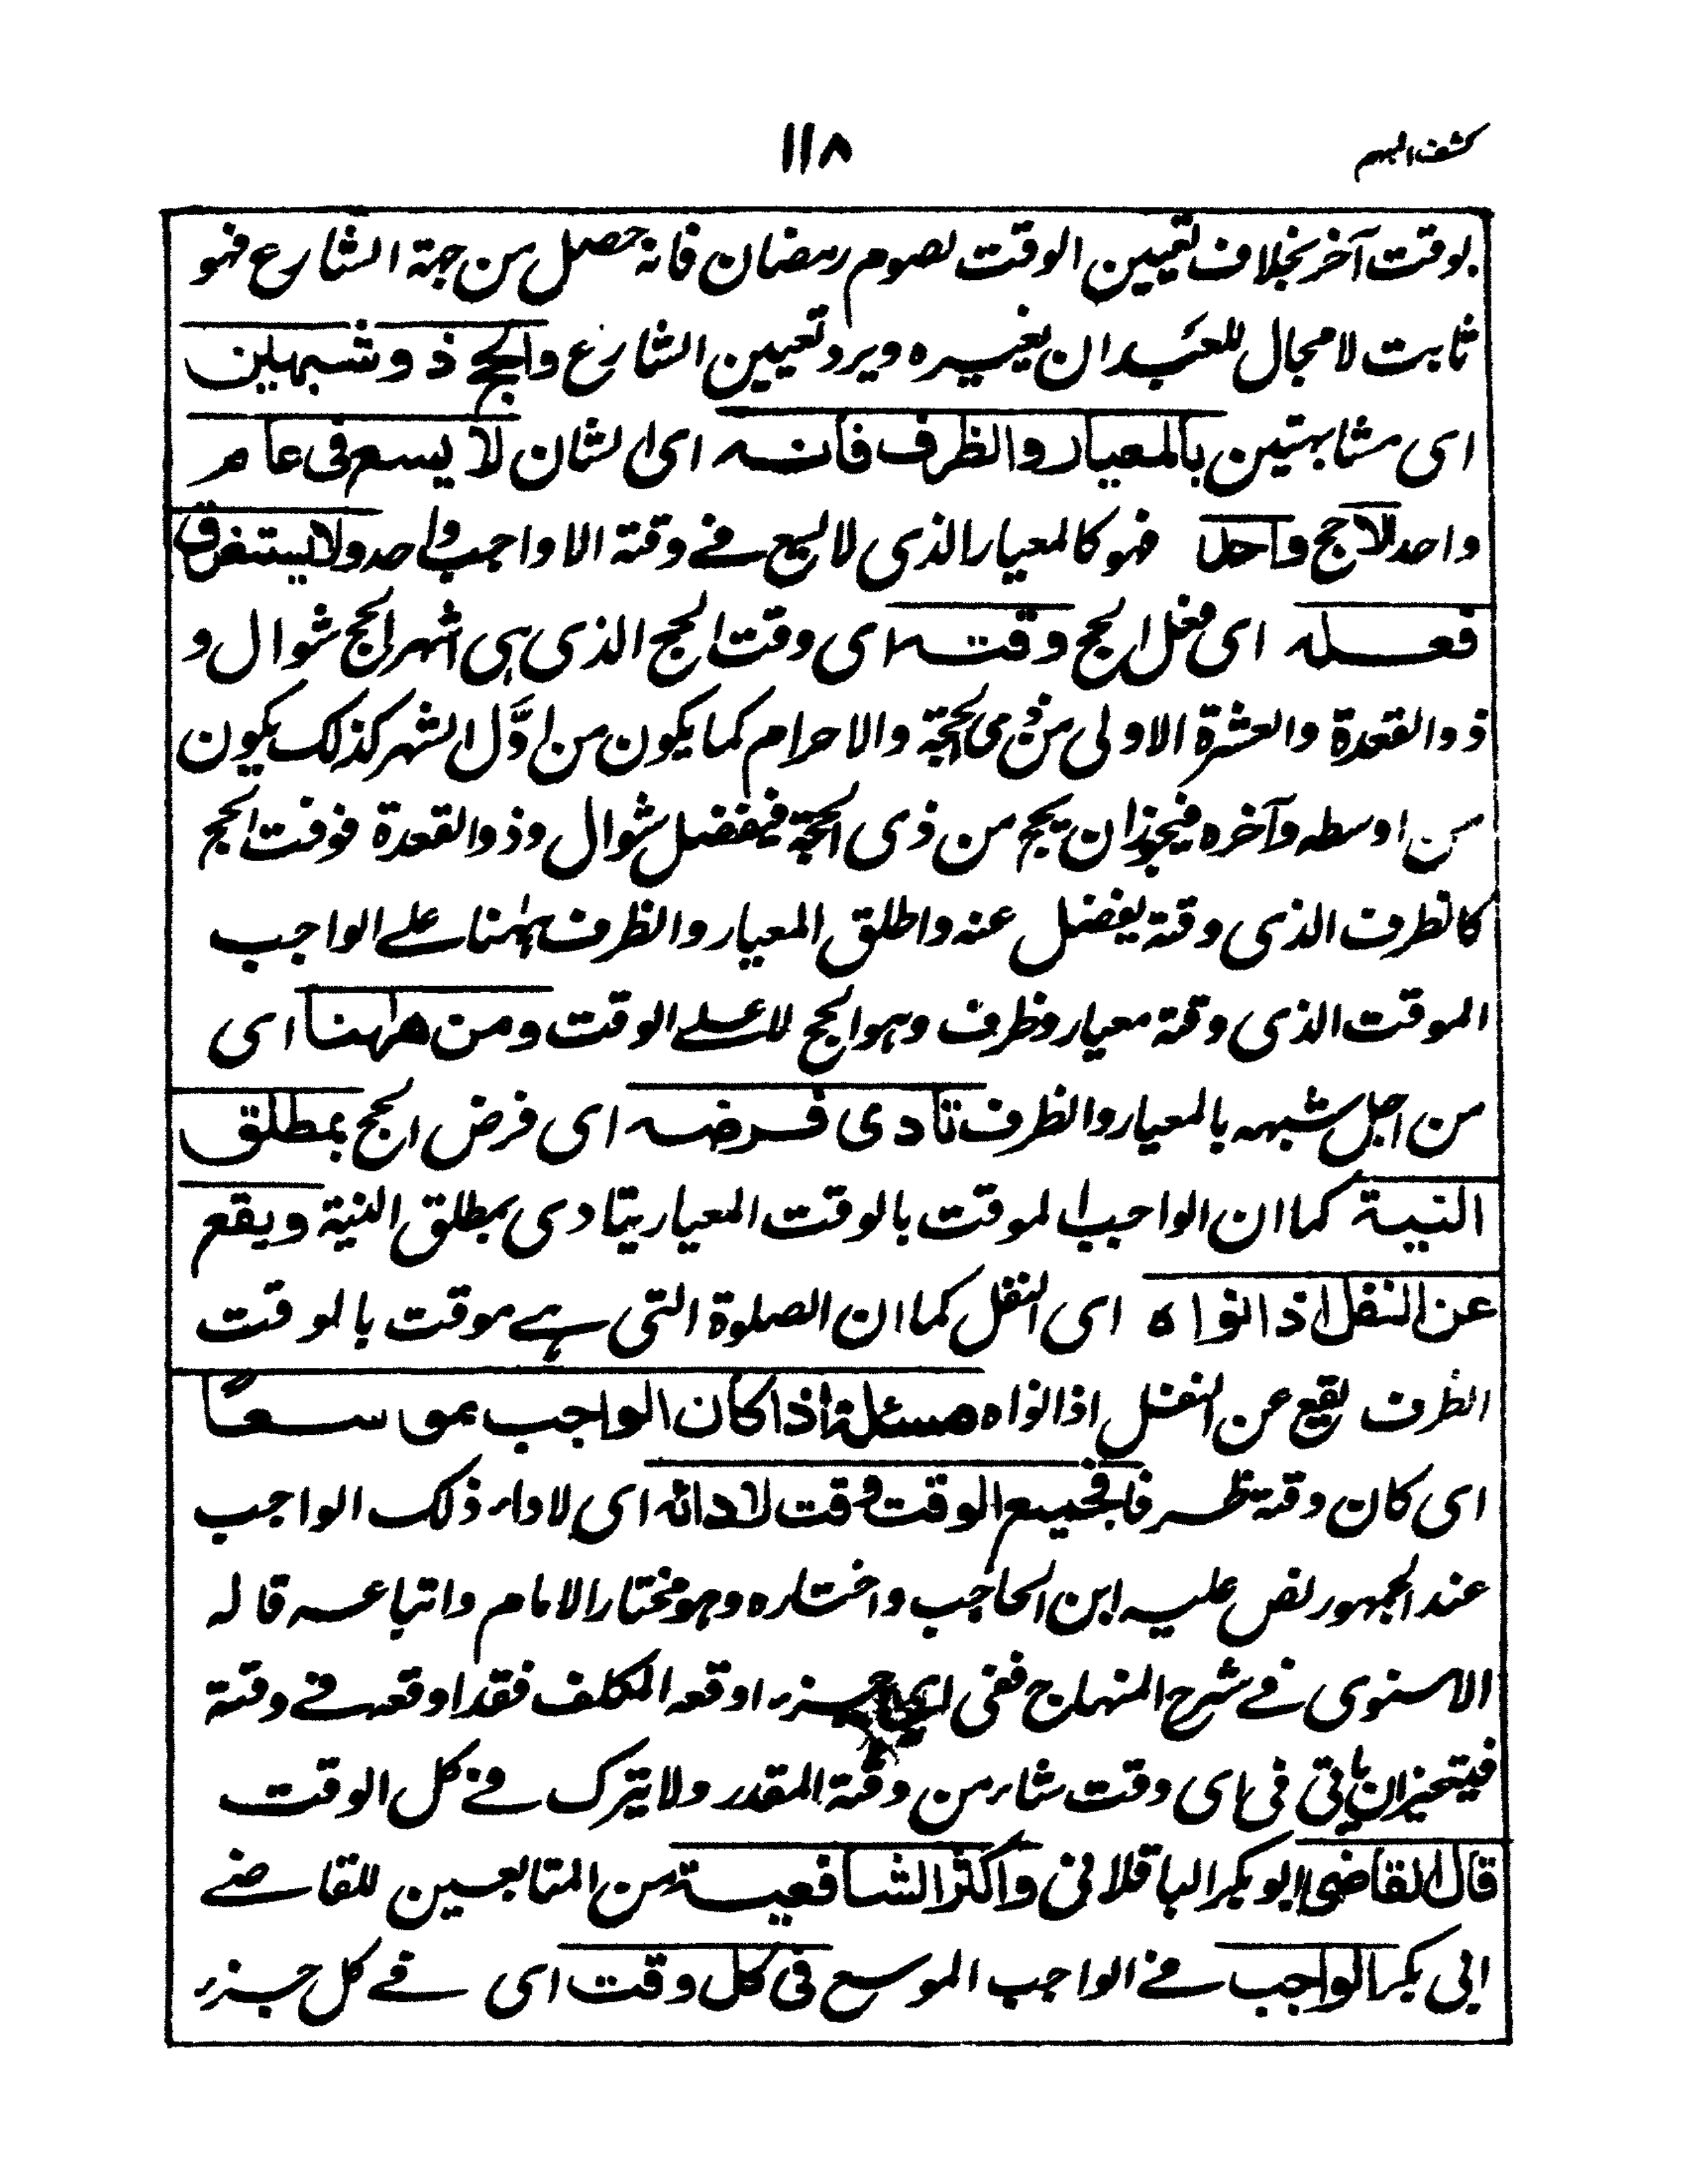 كشف المبهم
١١٨
بوقت آخر بخلاف تعيين الوقت لصوم رمضان فانه حصل من جهة الشارع فهو
ثابت لا مجال للعبد ان يغيره ويرد تعيين الشارع والحج ذو شبهين
اى مشابهتين بالمعيار والظرف فانه اى الشان لا يسع فى عام
واحد الا حج واحد فهو كالمعيار الذى لا يسع فى وقته الا واجب واحد ولا يستغرق
فعله اى فعل الحج وقته اى وقت الحج الذى هى اشهر الحج شوال و
ذو القعدة والعشرة الاولى من ذى الحجة والاحرام كما يكون من اوَّل الشهر كذلك يكون
من اوسطه وآخره فيجوز ان يحج من ذى الحجة فيفضل شوال وذو القعدة فوقت الحج
كالظرف الذى وقته يفضل عنه واطلق المعيار والظرف ههنا على الواجب
الموقت الذى وقته معيار وظرف وهو الحج لا على الوقت ومن ههنا اى
من اجل شبهه بالمعيار والظرف تأدى فرضه اى فرض الحج بمطلق
النية كما ان الواجب الموقت بالوقت المعيار يتادى بمطلق النية ويقع
عن النفل اذا نواه اى النفل كما ان الصلوة التى هے موقت بالوقت
الظرف يقع عن النفل اذا نواه مسئلة اذا كان الواجب موسعًا
اى كان وقته ظرفا فجميع الوقت وقت لادائه اى لاداء ذلك الواجب
عند الجمهور نص عليه ابن الحاجب واختاره وهو مختار الامام واتباعه قاله
الاسنوى فى شرح المنهاج ففى اى جزء اوقعه المكلف فقد اوقعه فى وقته
فيتخير ان ياتى فى اى وقت شاء من وقته المقدر ولا يترك فى كل الوقت
قال القاضى ابو بكر الباقلانى واكثر الشافعية من المتابعين للقاضے
ابى بكر الواجب فى الواجب الموسع فى كل وقت اى فى كل جزء